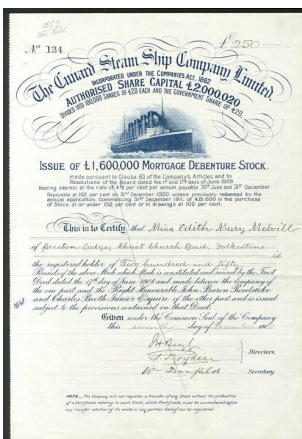 £250
No 134
The Cunard Steam Ship Company Limited.
INCORPORATED UNDER THE COMPANIES ACT, 1862
AUTHORISED SHARE CAPITAL £2,000,020
DIVIDED INTO 100,000 SHARES OF £20 EACH AND ONE GOVERNMENT SHARE OF £20.
ISSUE OF £1,600,000 MORTGAGE DEBENTURE STOCK,
made pursuant to Clause 83 of the Company's Articles and to
Resolutions of the Board dated the 1st and 17th days of June 1908
Bearing interest at the rate of 4½ per cent per annum payable 30th June and 31st December
Repayable at 102 per cent on 31st December 1930, unless previously redeemed by the
annual application, Commencing 31st December 1911, of £45,600 in the purchase
of Stock, at or under 102 per cent or in drawings at 102 per cent.
This is to Certify that Miss Edith Mary Melvill
of Preston Lodge, Christ Church Road, Folkestone
is
the registered holder of Two hundred and fifty
Pounds of the above Stock which Stock is constituted and secured by the Trust
Deed dated the 17th day of June 1908 and made between the Company of
the one part and the Right Honourable John Baron Revelstoke
and Charles Booth Junior Esquire of the other part and is issued
subject to the provisions contained in that Deed.
Given under the Common Seal of the Company
this seventh day of December 1908
Directors.
Secretary.
NOTE.— The Company will not register a transfer of any Stock without the production
of a Certificate relating to such Stock, which Certificate must be surrendered before
any transfer whether of the whole or any portion thereof can be registered.